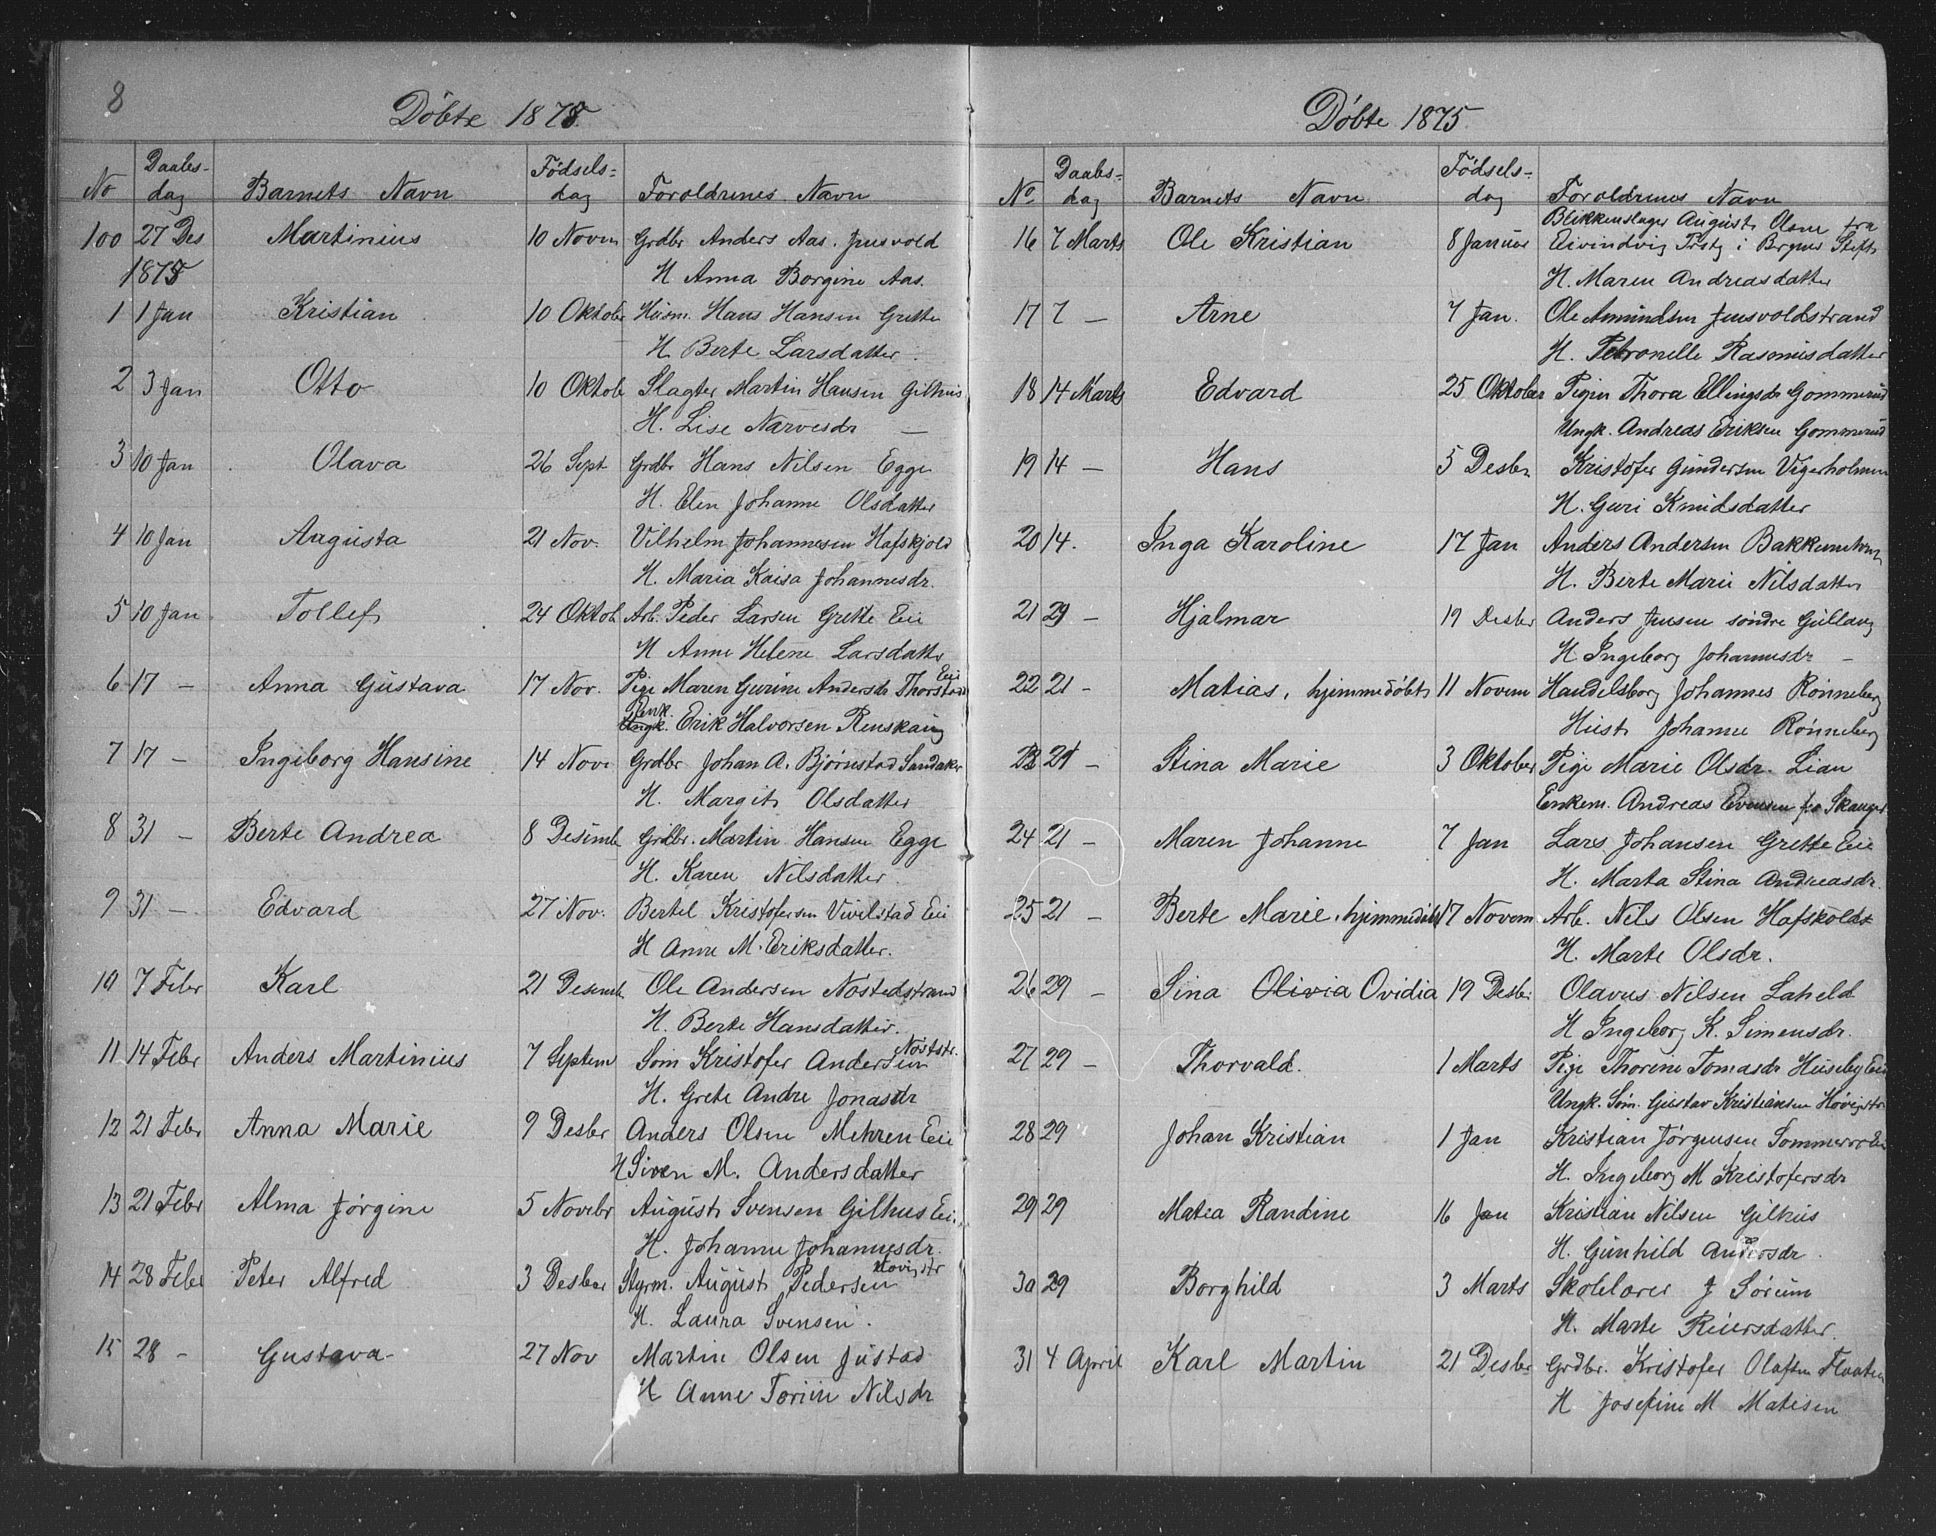 8
Döbte 1875
No Daabs- dag Barnets Navn Födsels- dag Foroldrenes Navn
100 27 Des Martinius 10 Novm Grdbr Anders Aas. Jusvold
1875 H Anna Borgine Aas.
1 1 Jan Kristian 10 Oktober Husm. Hans Hansen Grette
H. Berte Larsdatter.
2 3 Jan Otto 10 Oktob Slagter Martin Hansen Gilhus
H. Lise Narvesdr —
3 10 Jan Olava 26 Sept Grdbr Hans Nilsen Egge
H. Elen Johanne Olsdatter
4 10 Jan Augusta 21 Nov. Vilhelm Johannesen Hafskjold
H. Maria Kaisa Johannesdr.
5 10 Jan Tollef 24 Oktob Arb. Peder Larsen Grette Eie
H Anne Helene Larsdatter
6 17 — Anna Gustava 17 Nov. Pige Maren Gurine Andersdr Thorstad Eie
Enk. Erik Halvorsen Renskaug
7 17 — Ingeborg Hansine 14 Nov. Grdbr Johan A. Bjørnstad Sandaker
H. Margit Olsdatter
8 31 — Berte Andrea 8 Desemb Grdbr. Martin Hansen Egge
H. Karen Nilsdatter.
9 31 — Edvard 27 Nov. Bertel Kristofersen Vivilstad Eie
H Anne M. Eriksdatter.
10 7 Febr Karl 21 Desemb Ole Andersen Nöstedstrand
H. Berte Hansdatter.
11 14 Febr Anders Martinius 7 Septem Söm Kristofer Andersen Nöststr.
H. Grete Andre Jonasdr
12 21 Febr Anna Marie 9 Desbr Anders Olsen Mehren Eie
H Siren M. Andersdatter
13 21 Febr Alma Jørgine 5 Novebr August Svensen Gilhus Eie
H. Johanne Johannesdr.
14 28 Febr Peter Alfred 3 Desber Styrm. August Pedersen Hovigstr
H. Laura Svensen.
15 28 — Gustava 27 Nov Martin Olsen Justad
H Anne Torine Nilsdr
Döbte 1875.
No. Daabs- dag Barnets Navn Födsels- dag Foroldrenes Navn
16 7 Marts Ole Kristian 8 Januar Blikkenslager August Olsen fra
Eivindvig Prstg i Brgens Stift
H. Maren Andreasdatter
17 7 — Arne 7 Jan. Ole Amundsen Jusvoldstrand
H. Petronelle Rasmusdatter
18 14 Marts Edvard 25 Oktober Pigen Thora Ellingsdr Gommerud
Ungk. Andreas Eriksen Gommerud
19 14 — Hans 5 Desbr Kristofer Gundersen Vigerholmen
H. Guri Knudsdatter
20 14. Inga Karoline 17 Jan Anders Andersen
H. Berte Marie Nilsdatter
21 29 — Hjalmar 19 Desbr Anders Jensen söndre Gullaug
H. Ingeborg Johannesdr —
22 21 — Matias, hjemmedöbt 11 Novem Handelsborg Johannes Rønneberg
Hust Johanne Rønneberg
23 21 — Stina Marie 3 Oktober Pige Marie Olsdr. Lian
Enkem. Andreas Evensen fra Skauger
24 21 — Maren Johanne 7 Jan Lars Johansen Grette Eie
H. Marta Stina Andreasdr.
25 21 — Berte Marie, hjemmedöbt 17 Novem Arb. Nils Olsen Hafskoldt
H. Marte Olsdr.
26 29 — Sina Olivia Ovidia 19 Desbr. Olavus Nilsen Laheld
H Ingeborg K. Simensdr.
27 29 — Thorvald. 1 Marts Pige Thorine Tomasdr Huseby Eie
Ungk. Söm. Gustav Kristiansen Hövigstr
28 29 Johan Kristian 1 Jan Kristian Jörgensen Sommerro Eie
H. Ingeborg M Kristofersdr
29 29 Matea Randine 16 Jan Kristian Nilsen Gilhus
H. Gunhild Andersdr.
30 29 Borghild 3 Marts Skolelærer J Sørum
H. Marte Reiersdatter.
31 4 April Karl Martin 21 Desbr Grdbr. Kristofer Olafsen Flaaten
H Josefine M Matisen